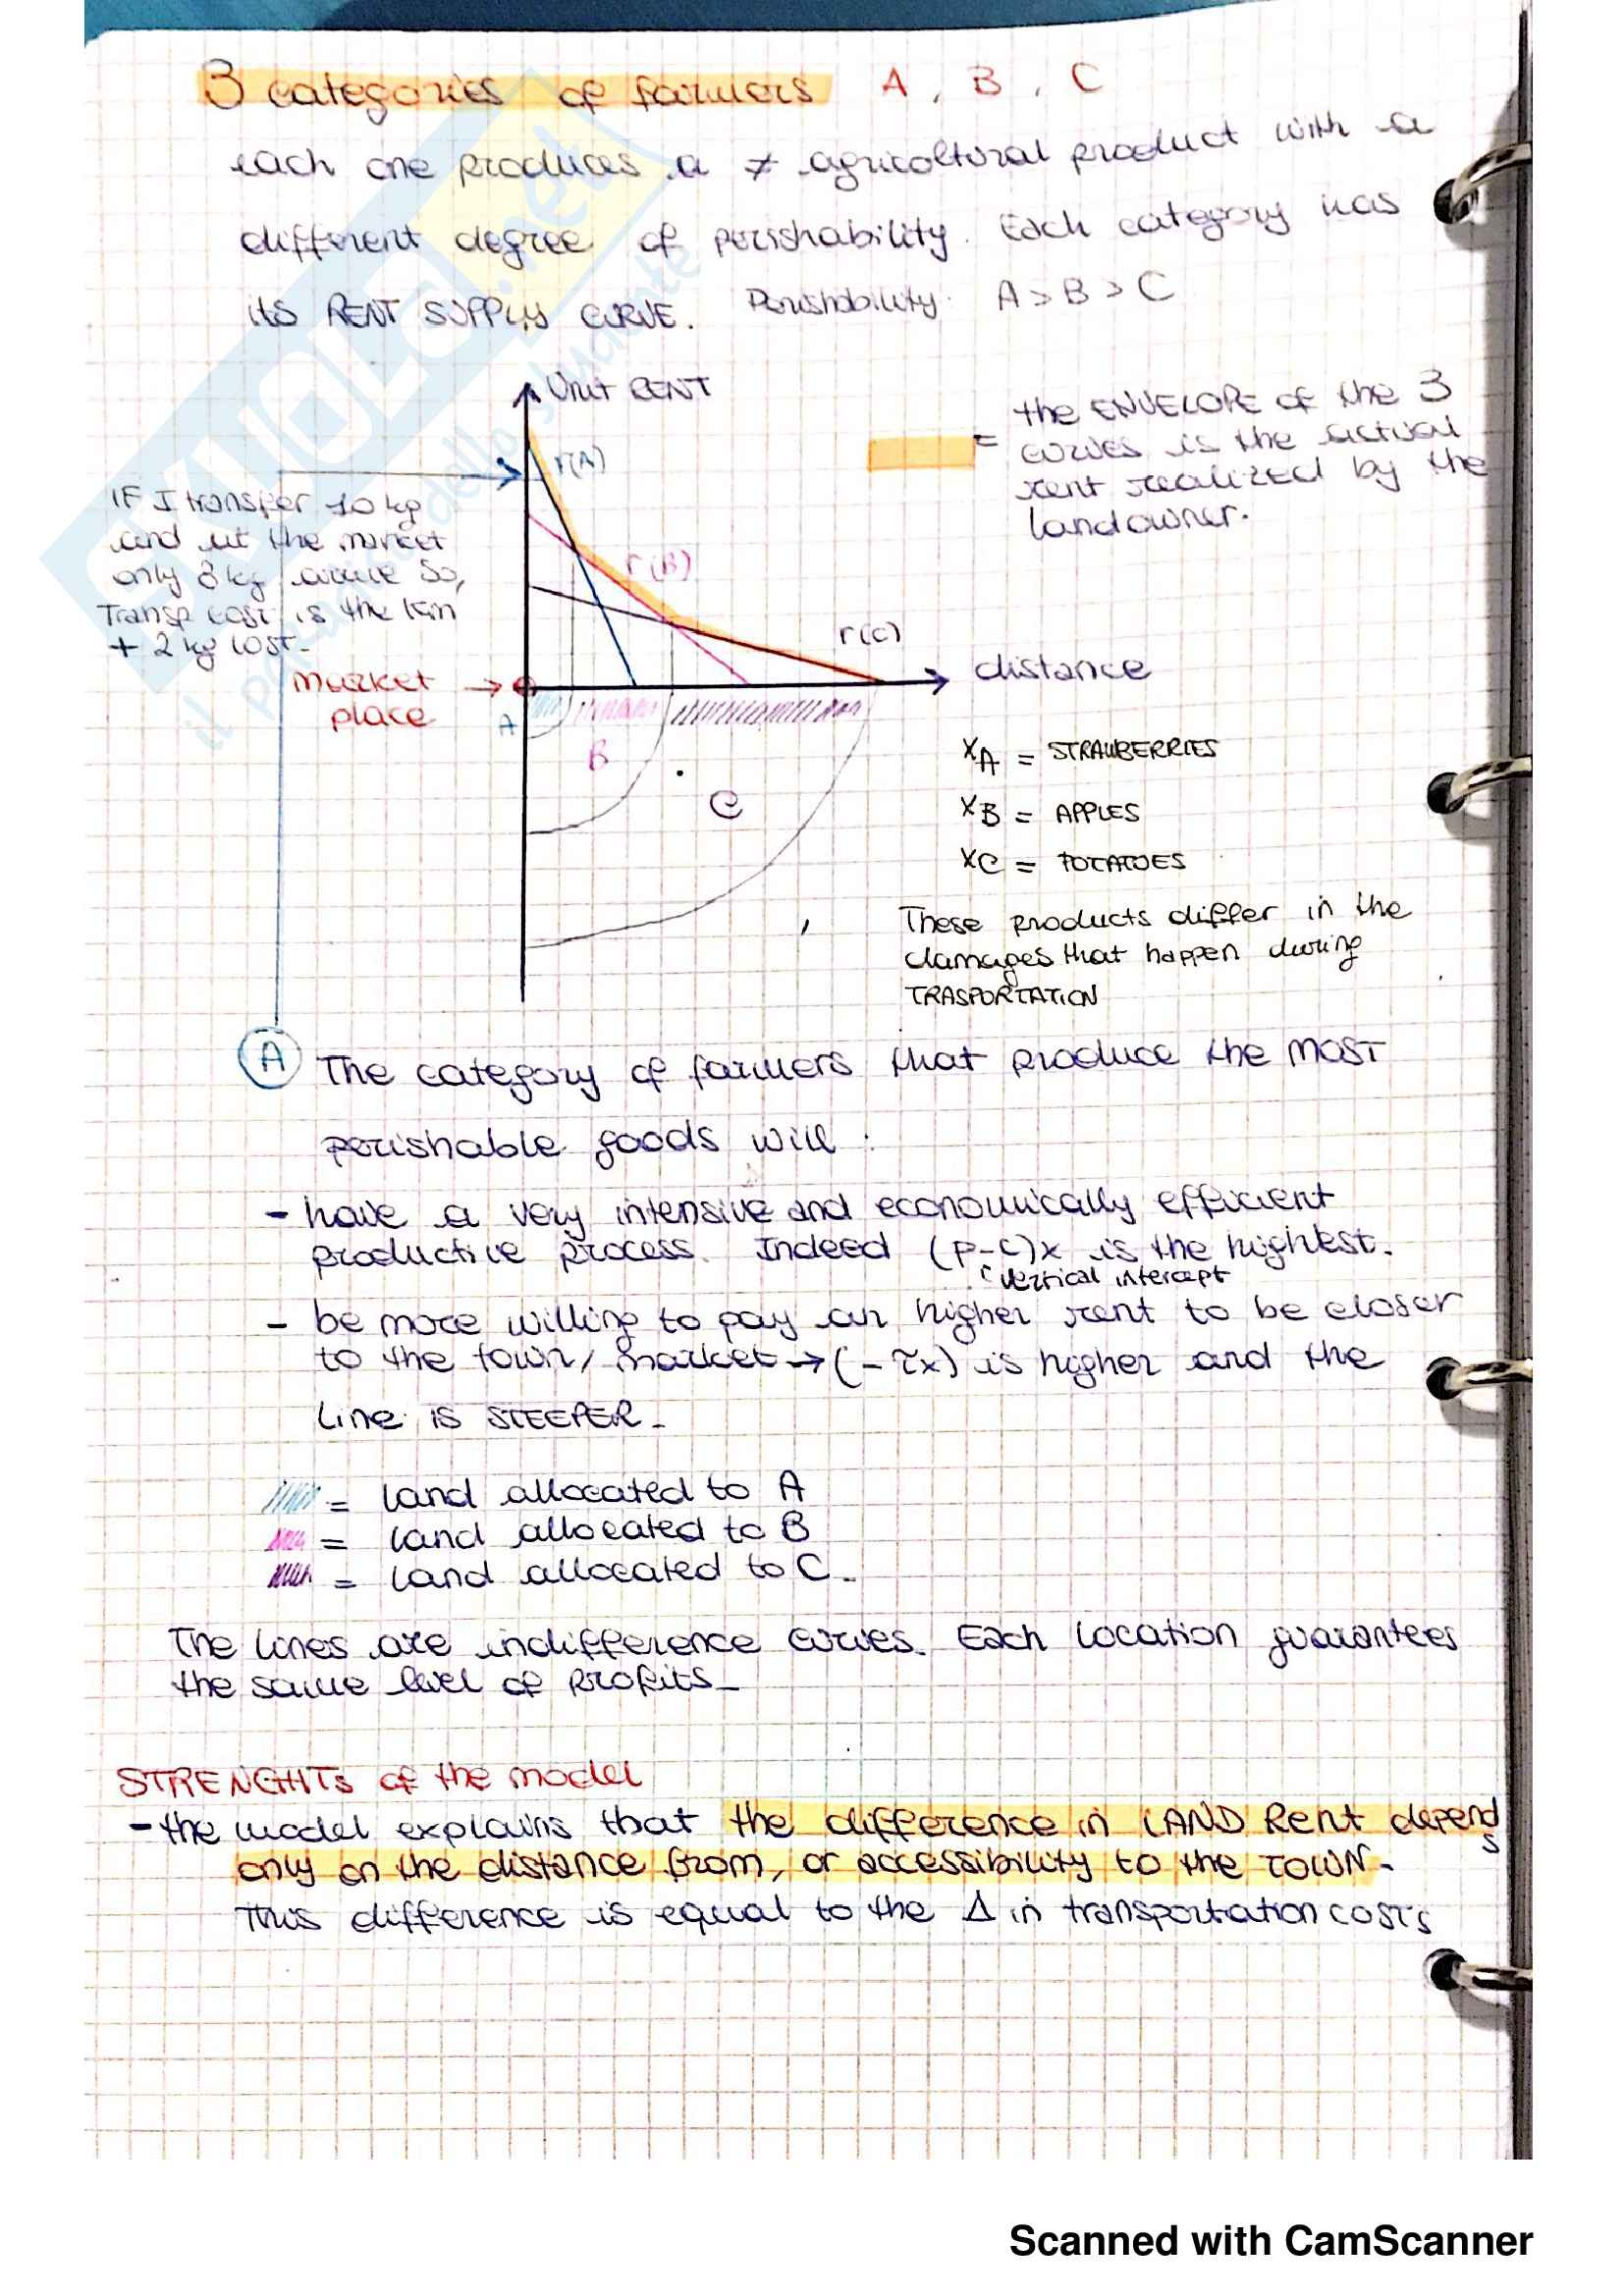 3 categories of farmers A, B, C
each one produces a ≠ agricoltural product with a
different degree of perishability. Each category has
its RENT SUPPLY CURVE. Perishability: A > B > C
Unit RENT
r(A)
= the ENVELOPE of the 3
curves is the actual
rent realized by the
landowner.
IF I transfer 10 kg
and at the market
only 8 kg arrive so,
Transp cost is the km
+ 2 kg lost.
r(B)
r(C)
distance
market
place
A
B
C
xA = STRAWBERRIES
xB = APPLES
xC = POTATOES
These products differ in the
damages that happen during
TRASPORTATION
A The category of farmers that produce the MOST
perishable goods will:
- have a very intensive and economically efficient
productive process. Indeed (p-c)x is the highest.
vertical intercept
- be more willing to pay an higher rent to be closer
to the town/market → (-τx) is higher and the
line is STEEPER.
= land allocated to A
= land allocated to B
= land allocated to C.
The lines are indifference curves. Each location guarantees
the same level of profits.
STRENGHTs of the model
- the model explains that the difference in LAND Rent depends
only on the distance from, or accessibility to the TOWN.
This difference is equal to the Δ in transportation costs
SKUOLA.net
il paradiso dello studente
Scanned with CamScanner